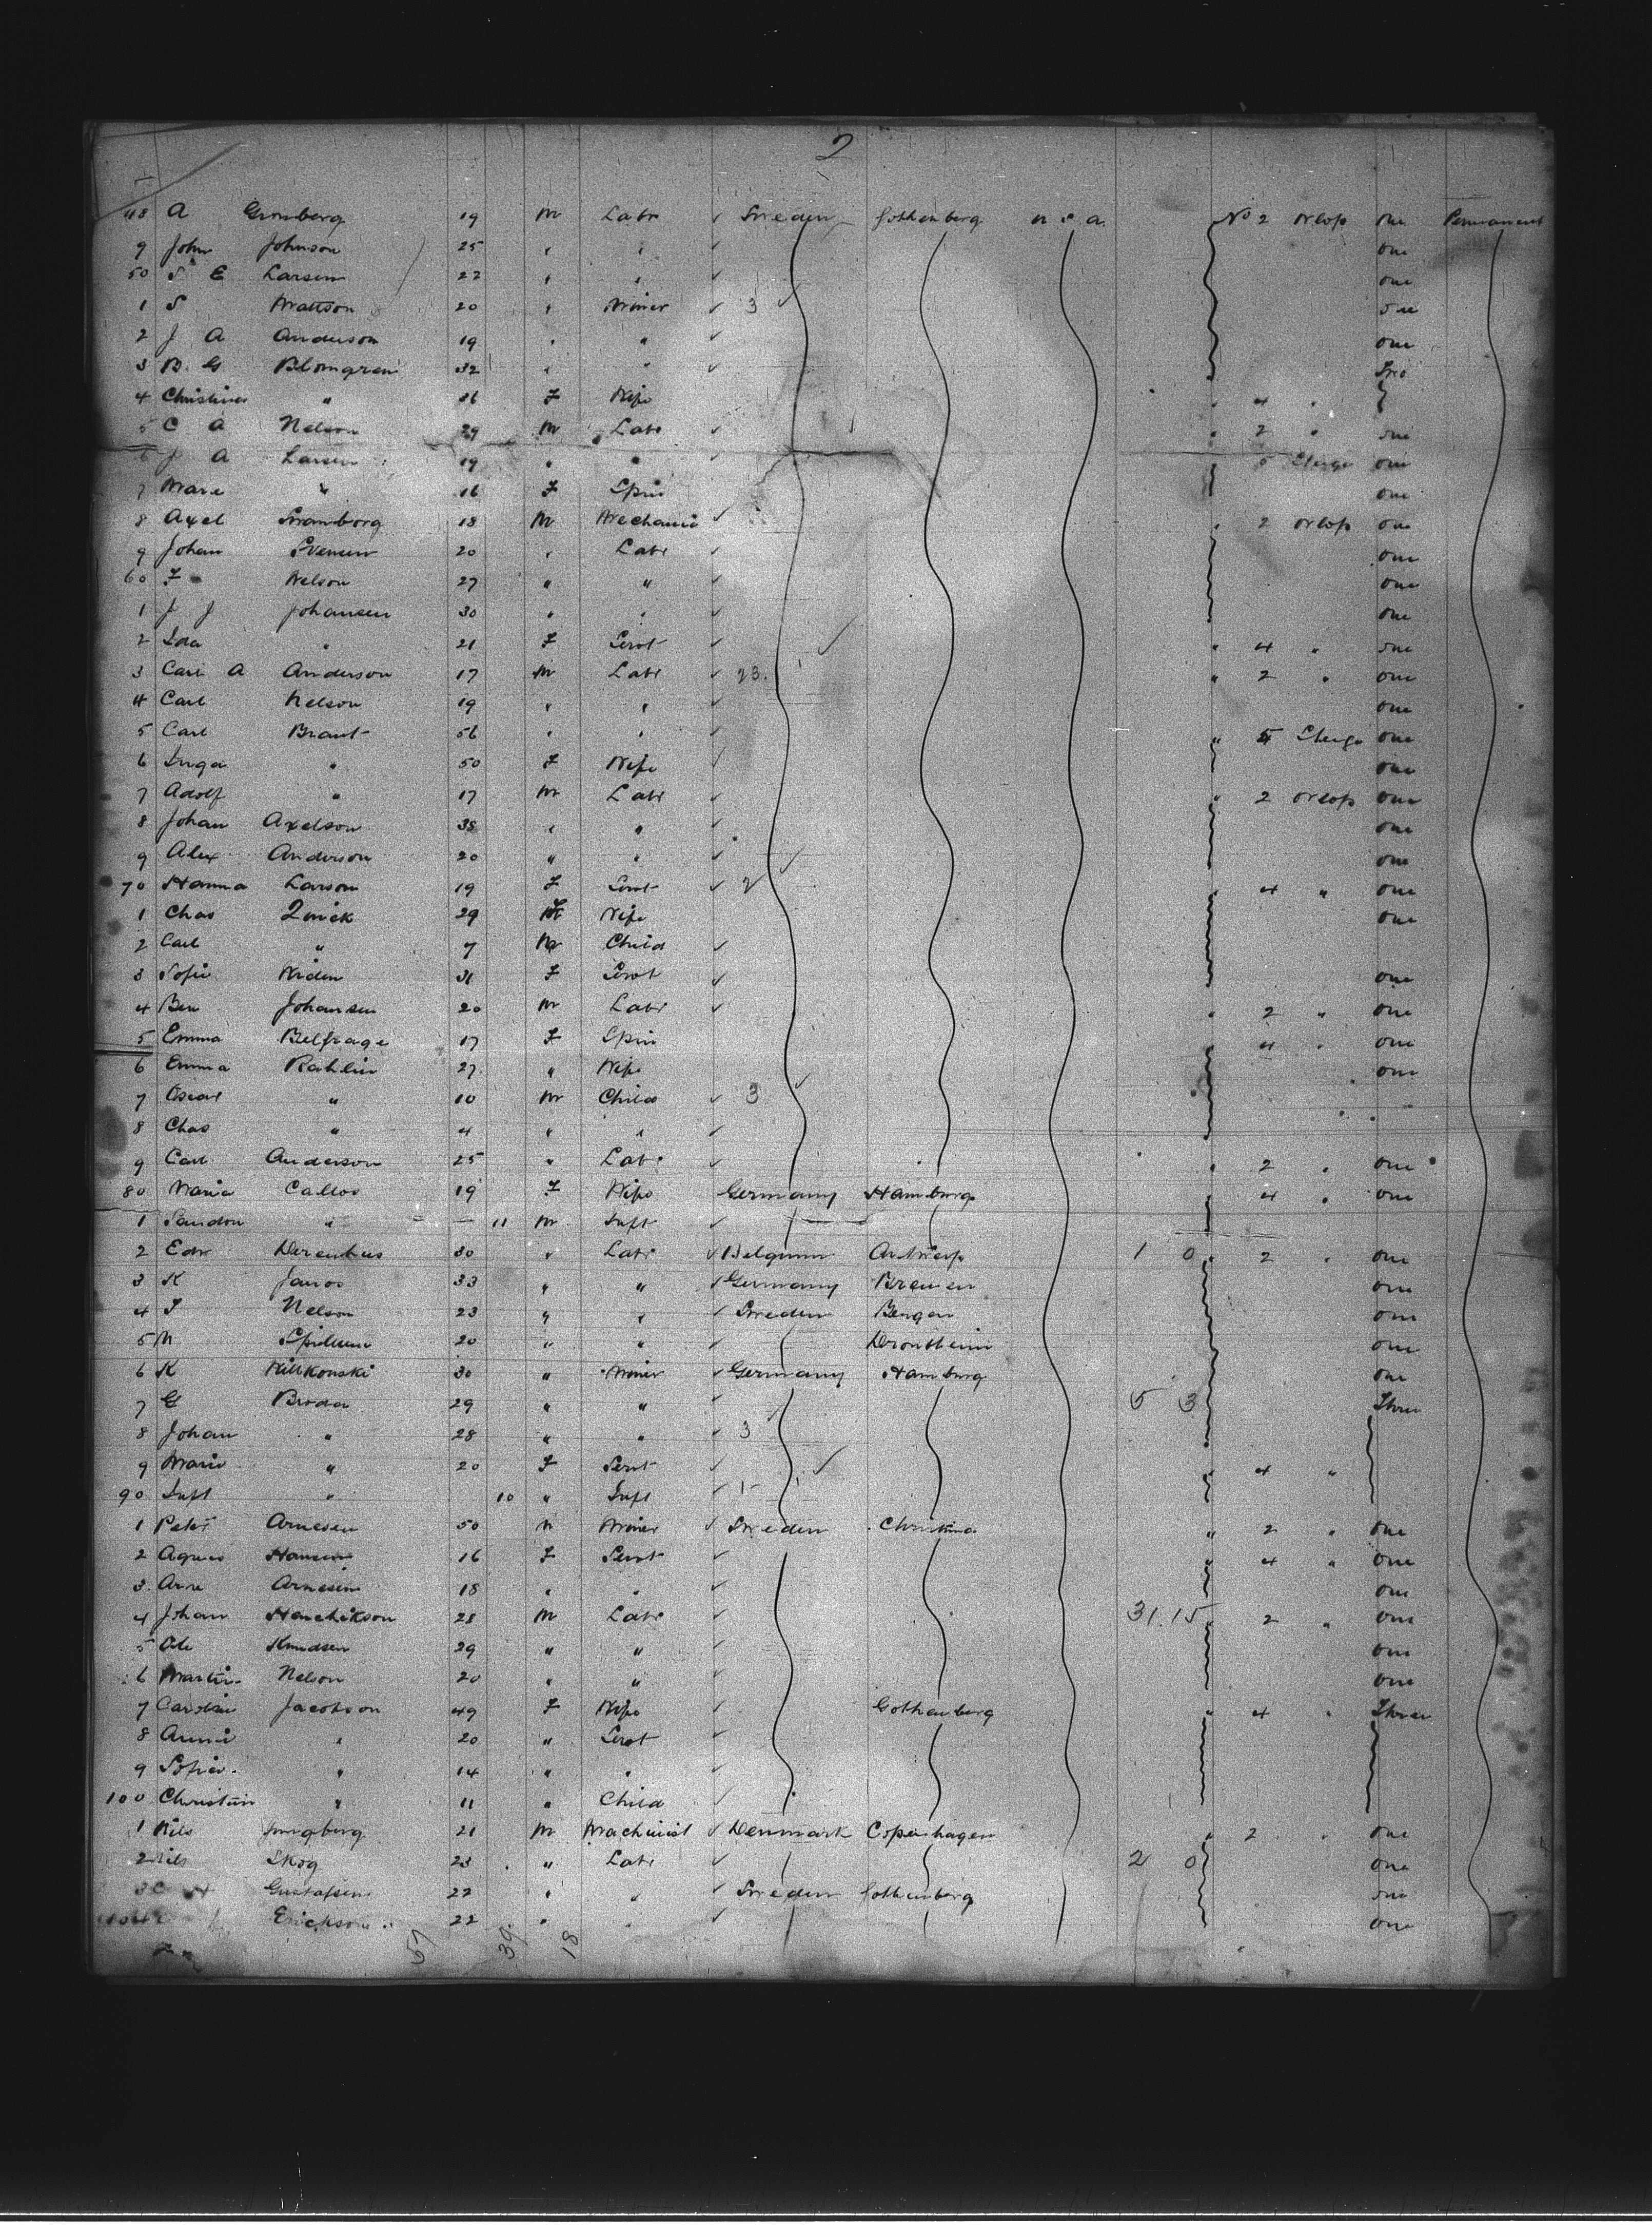 2
48 A Gronberg 19 M Labr ✓ Sweden Gothenberg U S A No 2 Orlop One Permanent
9 John Johnson 25 " " ✓ One
50 S E Larsen 22 " " ✓ One
1 S Mattson 20 " Miner ✓ 3 ✓ One
2 J A Anderson 19 " " ✓ One
3 B. G Blomgren 32 " " ✓ Two
4 Christina " 26 F Wife " 4 "
5 C A Nelson 29 M Labr ✓ " 2 " One
6 J A Larsen 19 " " ✓ 5 Steerge One
7 Marie " 16 F Spin One
8 Axel 18 M Mechanic ✓ " 2 Orlop One
9 Johan Svensen 20 " Labr ✓ One
60 F Nelson 27 " " ✓ One
1 J J Johansen 30 " " ✓ One
2 Ida " 21 F Servt ✓ " 4 " One
3 Carl A Anderson 17 M Labr ✓ 23 " 2 " One
4 Carl Nelson 19 " " ✓ One
5 Carl Brant 56 " " ✓ " 5 Steerge One
6 Inga " 50 F Wife ✓ One
7 Adolf " 17 M Labr ✓ " 2 Orlop One
8 Johan Axelson 38 " " ✓ One
9 Alex Anderson 20 " " ✓ ✓ One
70 Hanna Larson 19 F Servt ✓ 2 " 4 " One
1 Chas Quick 29 F Wife One
2 Carl " 7 M Child ✓
3 Sofie Widen 31 F Servt ✓ One
4 Ben Johansen 20 M Labr ✓ " 2 " One
5 Emma Belfrage 17 F Spin " 4 " One
6 Emma Rahlin 27 " Wife One
7 Oscar " 10 M Child ✓ 3 ✓
8 Chas " 4 " " ✓
9 Carl Anderson 25 " Labr ✓ " 2 " One
80 Maria Callos 19 F Wife Germany Hamburg " 4 " One
1 Sandor " — 11 M Inft ✓
2 Edw 30 " Labr ✓ Belgium Antwerp 1 0 " 2 " One
3 K Janos 33 " " ✓ Germany Bremen One
4 Nelson 23 " " ✓ Sweden Bergen One
5 20 " " ✓ Drontheim One
6 K Witkonski 30 " Miner ✓ Germany Hamburg One
7 G Broda 29 " " 5 3 Three
8 Johan " 28 " " ✓ 3
9 Marie " 20 F Servt ✓ ✓ " 4 "
90 Inft " 10 " Inft ✓ 1
1 Peter Arnesen 50 M Miner ✓ Sweden Christina " 2 " One
2 Agnes Hansen 16 F Servt ✓ " 4 " One
3 Arne Arnesen 18 " " ✓ One
4 Johan Henrikson 28 M Labr ✓ 31.15 " 2 " One
5 Ole Knudsen 29 " " ✓ One
6 Martin Nelson 20 " " ✓ One
7 Jacobson 49 F Wife ✓ Gothenberg " 4 " Three
8 Annie " 20 " Servt ✓
9 Sofia " 14 " " ✓
100 Christin " 11 " Child ✓
1 Nils Jungberg 21 M Machinist ✓ Denmark Copenhagen " 2 " One
2 Nils Skog 23 " Labr ✓ 2 0 One
3 Gustafsen 22 " " ✓ Sweden Gothenberg One
104 Erickson 22 " " ✓ One
57 39 18